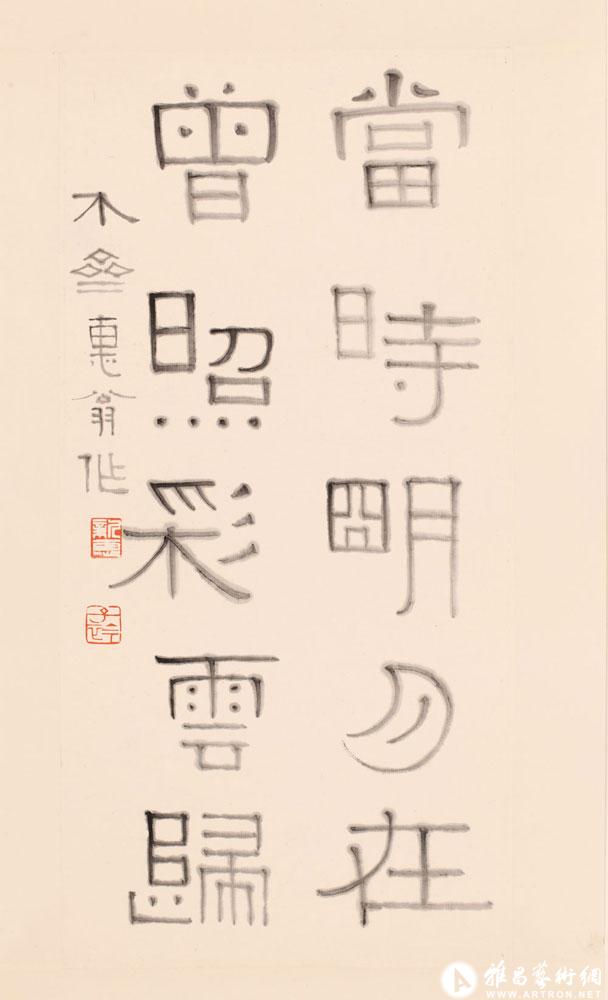 當時明月在
曾照彩雲歸
木惠翁作
雅昌藝術網
WWW.ARTRON.NET